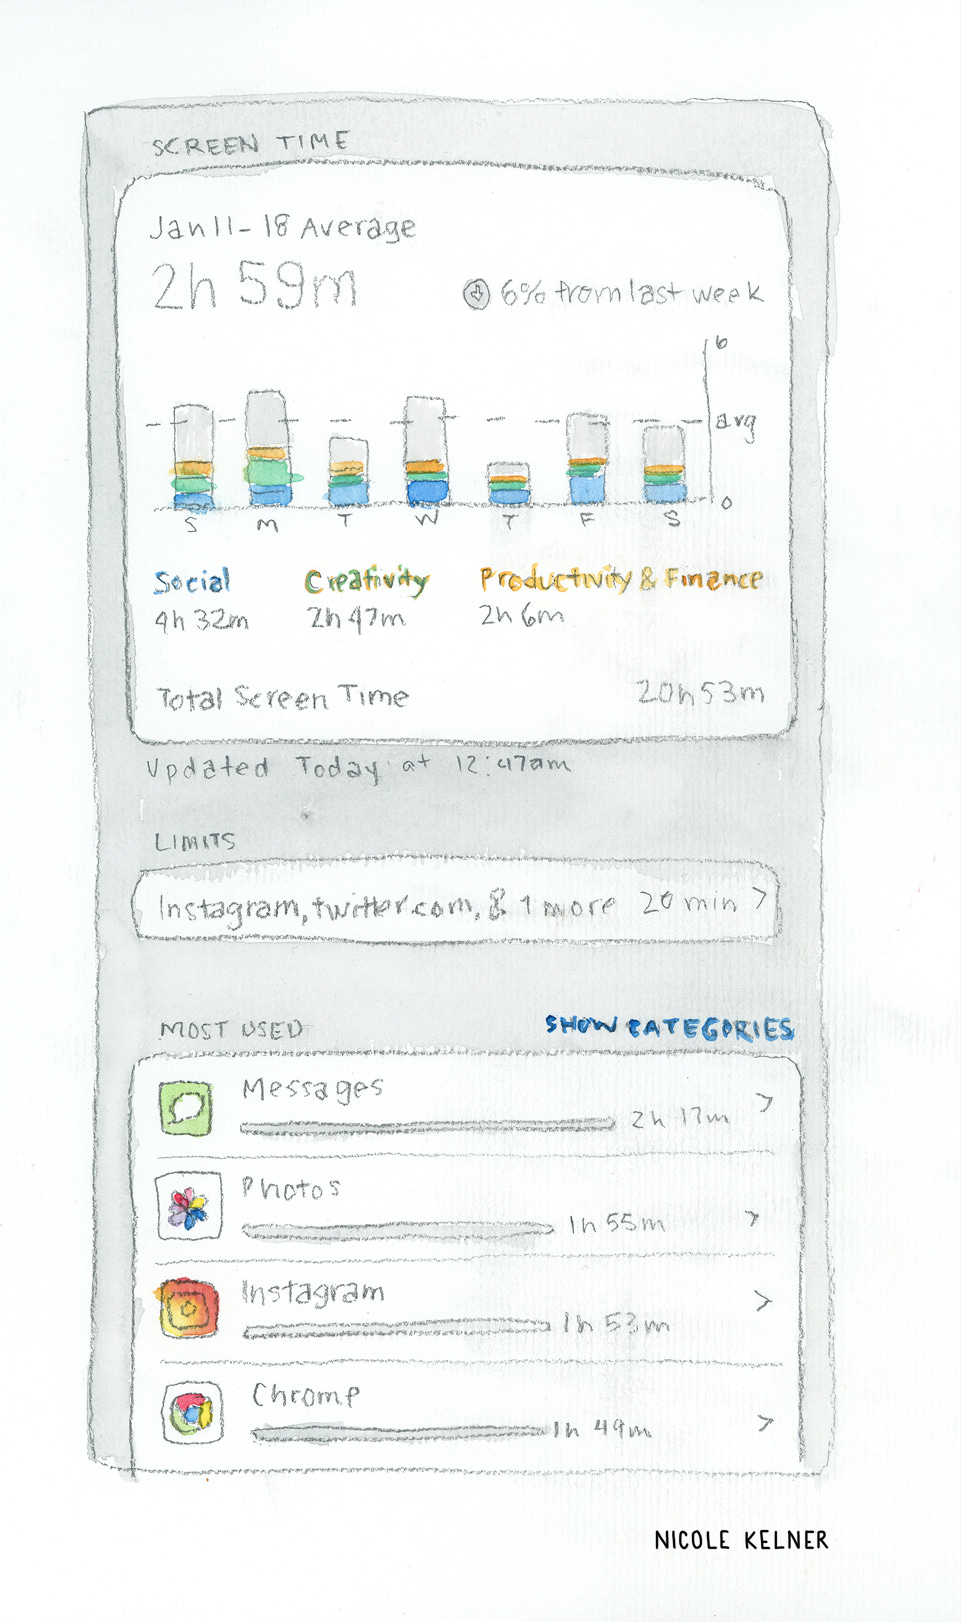 SCREEN TIME
Jan 11-18 Average
2h 59m
6% from last week
6
avg
0
S M T W T F S
Social Creativity Productivity & Finance
4h 32m 2h 47m 2h 6m
Total Screen Time 20h 53m
Updated Today at 12:47am
LIMITS
Instagram, twitter.com, & 1 more 20 min >
MOST USED SHOW CATEGORIES
Messages
2h 17m >
Photos
1h 55m >
Instagram
1h 53m >
Chrome
1h 49m >
NICOLE KELNER